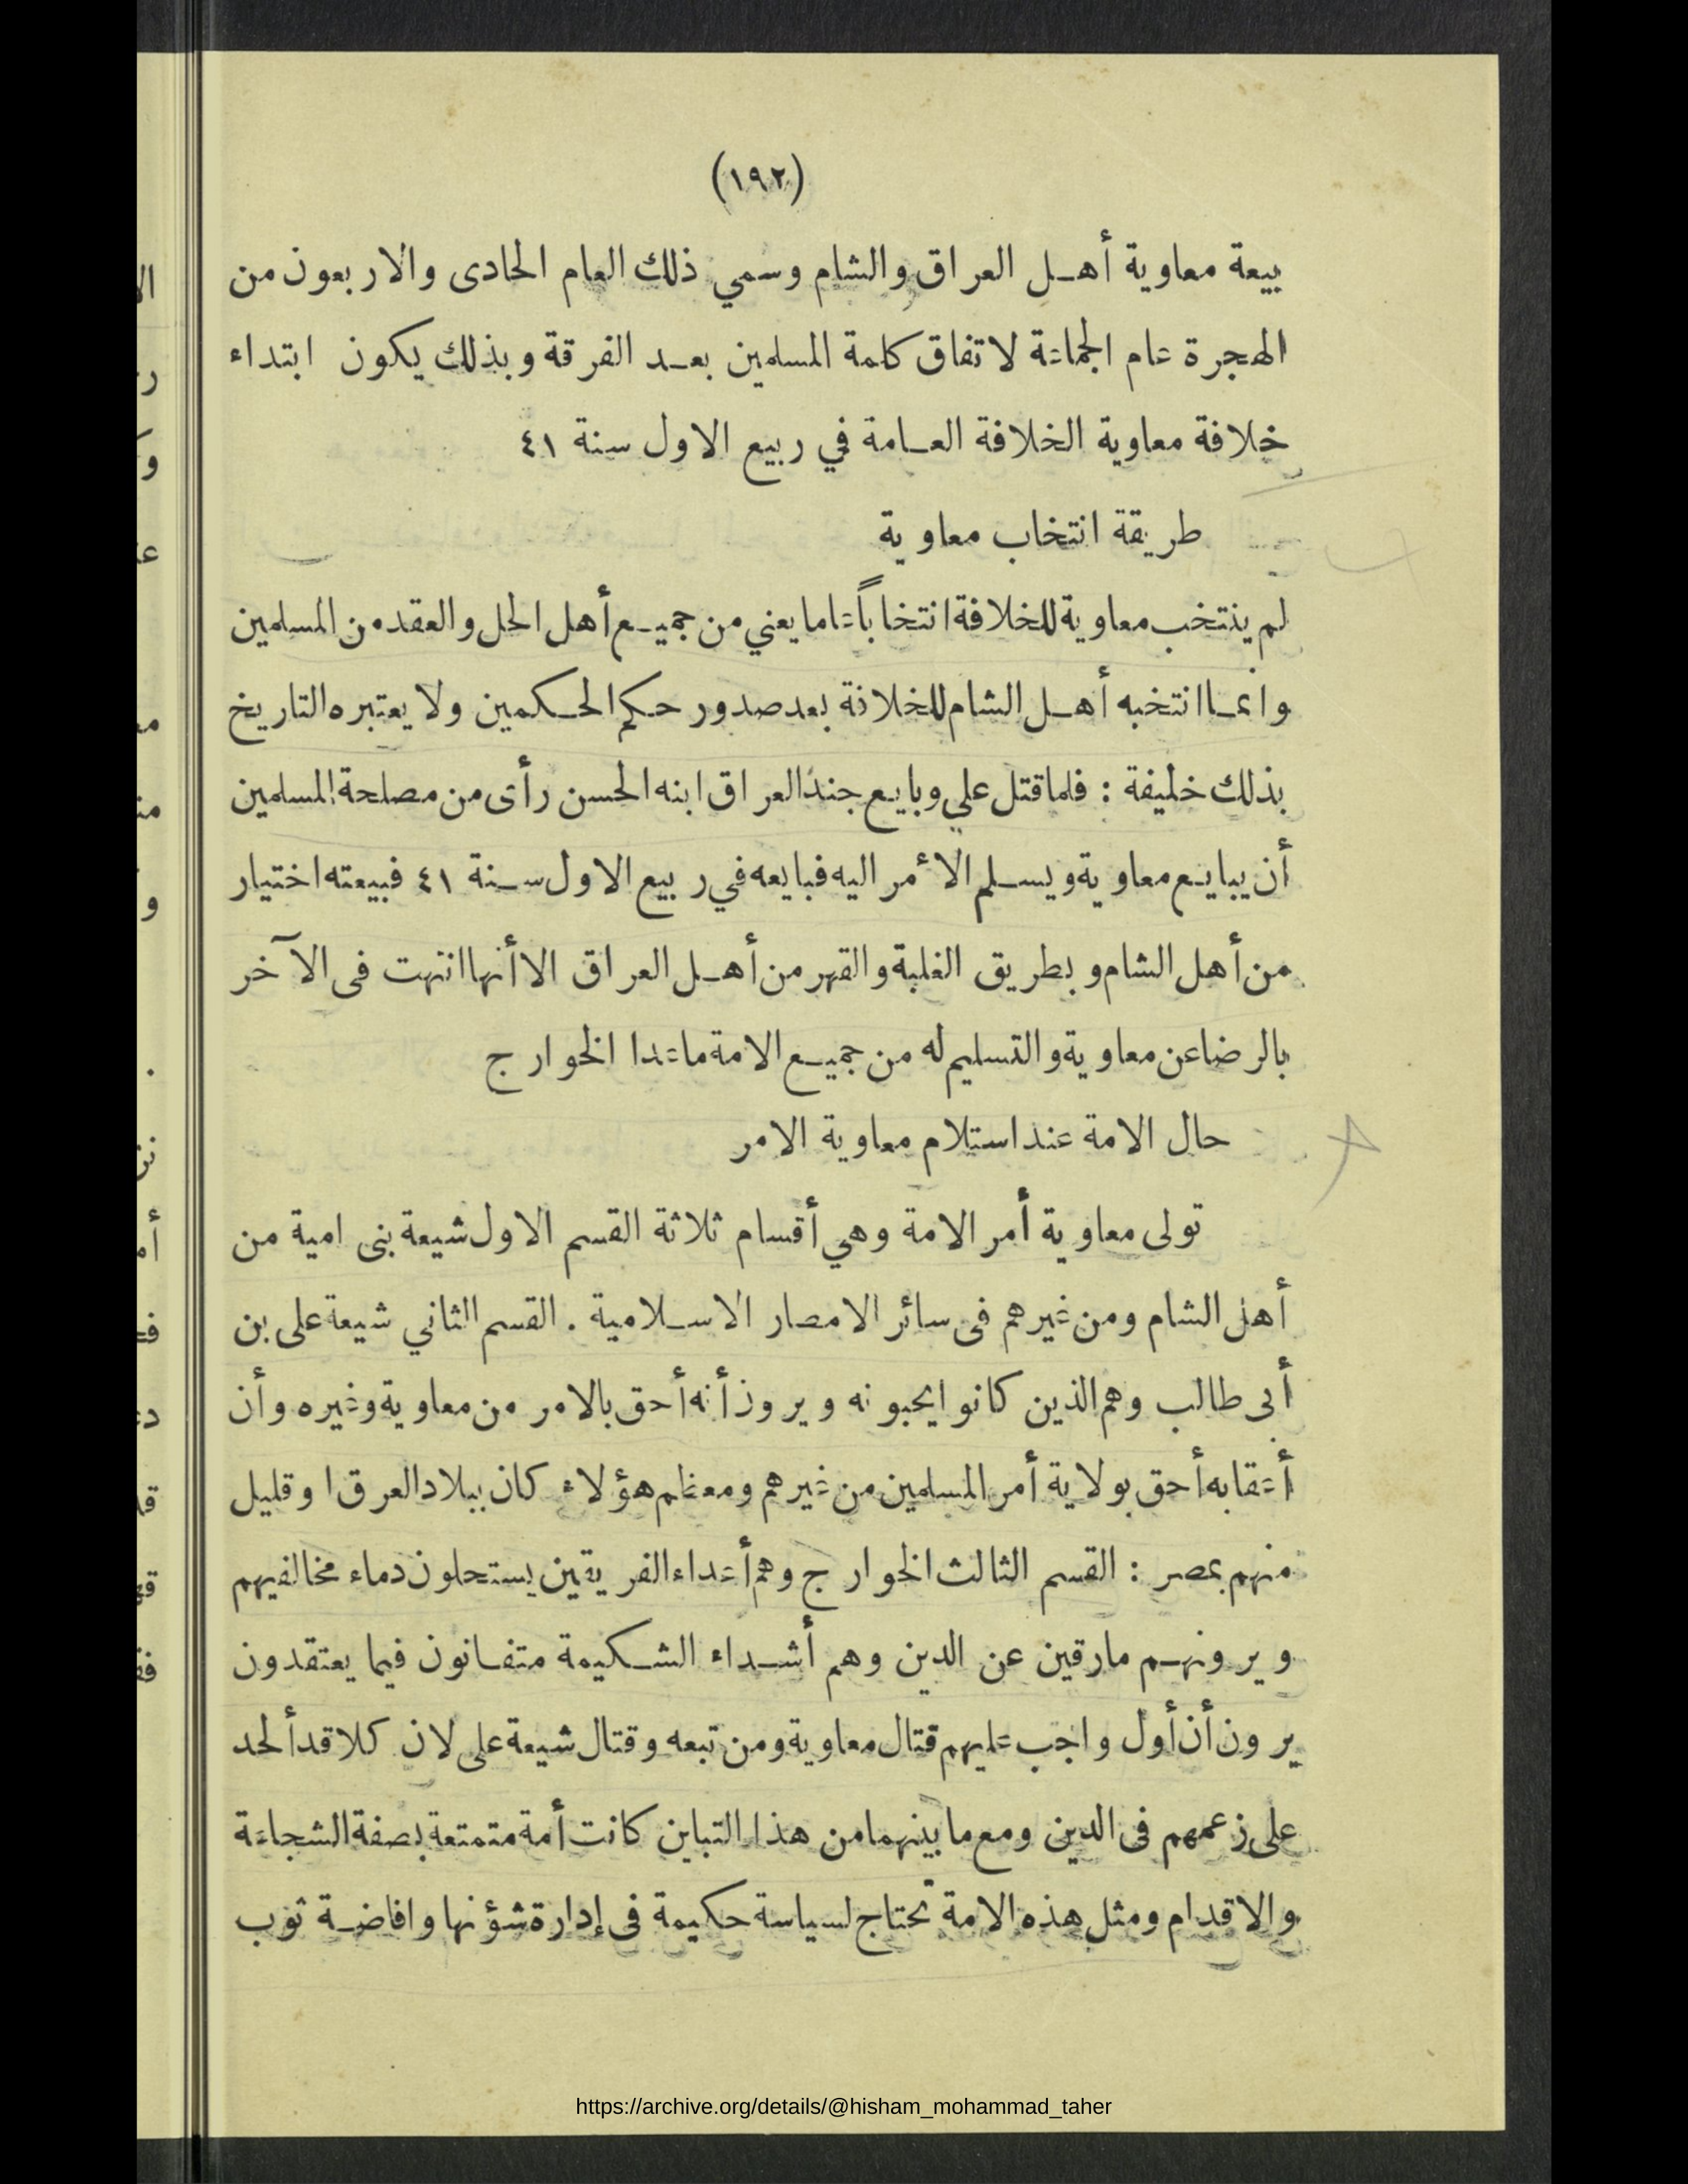 (١٩٢)
بيعة معاوية أهل العراق والشام وسمي ذلك العام الحادى والاربعون من
الهجرة عام الجماعة لاتفاق كلمة المسلمين بعد الفرقة وبذلك يكون ابتداء
خلافة معاوية الخلافة العامة في ربيع الاول سنة ٤١
طريقة انتخاب معاوية
لم ينتخب معاوية للخلافة انتخاباً عاما يعني من جميع أهل الحل والعقد من المسلمين
وانما انتخبه أهل الشام للخلافة بعد صدور حكم الحكمين ولا يعتبره التاريخ
بذلك خليفة : فلما قتل علي وبايع جند العراق ابنه الحسن رأى من مصلحة المسلمين
أن يبايع معاوية ويسلم الأمر اليه فبايعه في ربيع الاول سنة ٤١ فبيعته اختيار
من أهل الشام وبطريق الغلبة والقهر من أهل العراق الا أنها انتهت فى الآخر
بالرضا عن معاوية والتسليم له من جميع الامة ماعدا الخوارج
حال الامة عند استلام معاوية الامر
تولى معاوية أمر الامة وهي أقسام ثلاثة القسم الاول شيعة بنى امية من
أهل الشام ومن غيرهم فى سائر الامصار الاسلامية . القسم الثاني شيعة على بن
أبى طالب وهم الذين كانوا يحبونه ويرون أنه أحق بالامر من معاوية وغيره وأن
أعقابه أحق بولاية أمر المسلمين من غيرهم ومعظم هؤلاء كان ببلاد العرق ا وقليل
منهم بمصر : القسم الثالث الخوارج وهم أعداء الفريقين يستحلون دماء مخالفيهم
ويرونهم مارقين عن الدين وهم أشداء الشكيمة متفانون فيما يعتقدون
يرون أن أول واجب عليهم قتال معاوية ومن تبعه وقتال شيعة على لان كلا قد ألحد
على زعمهم فى الدين ومع ما بينهما من هذا التباين كانت أمة متمتعة بصفة الشجاعة
والاقدام ومثل هذه الامة تحتاج لسياسة حكيمة فى إدارة شؤنها وافاضة ثوب
https://archive.org/details/@hisham_mohammad_taher